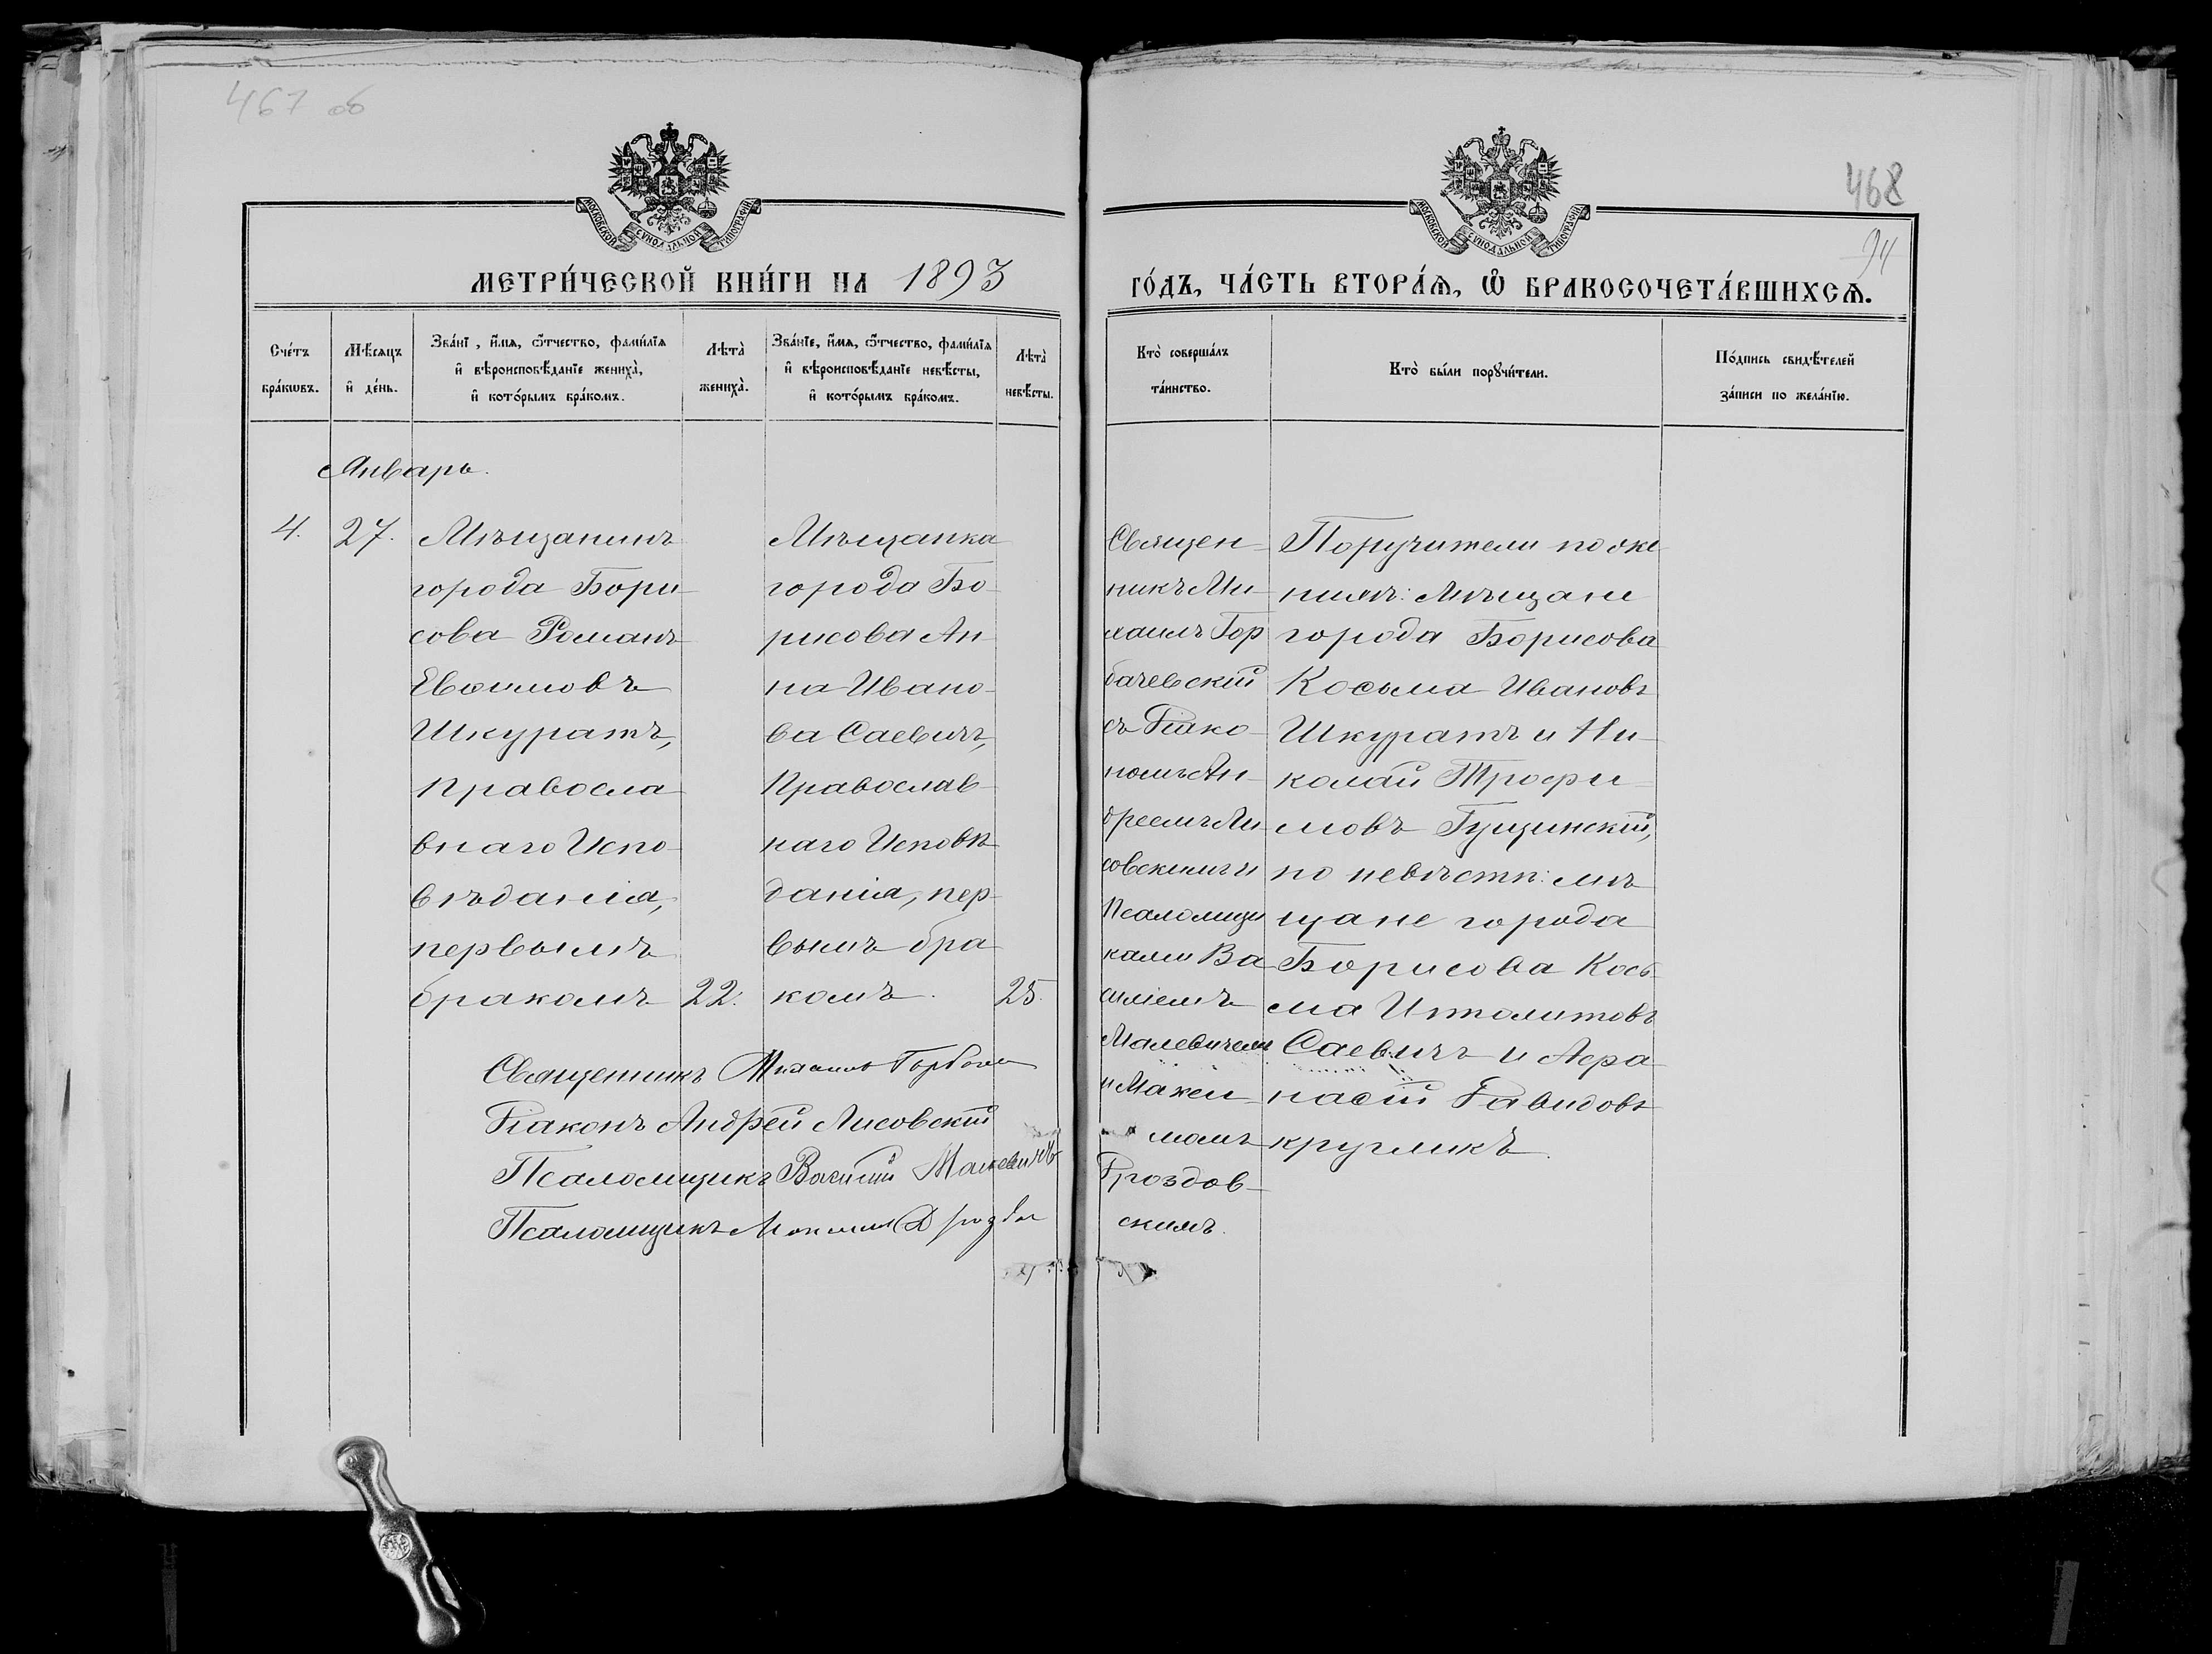 467 об
468
94
МОСКОВСКОЙ СУНОДАЛЬНОЙ ТИПОГРАФІИ
МОСКОВСКОЙ СУНОДАЛЬНОЙ ТИПОГРАФІИ
МЕТРИ́ЧЕСКОЙ КНИ́ГИ НА 1893
ГО́ДЪ, ЧА́СТЬ ВТОРА́Ѧ, Ѿ БРАКОСОЧЕТА́ВШИХСѦ.
Сче́тъ
бра́кѡвъ.
Мѣ́сѧцъ
и҆ де́нь.
Зва́нї , и҆́мѧ, ѻ҆́тчество, фами́лїѧ
и҆ вѣроисповѣ́данїе жениха̀,
и҆ кото́рымъ бра́комъ.
Лѣта̀
жениха̀.
Зва́нїе, и҆́мѧ, ѻ҆́тчество, фами́лїѧ
и҆ вѣроисповѣ́данїе невѣ́сты,
и҆ кото́рымъ бра́комъ.
Лѣта̀
невѣ́сты.
Кто̀ соверша́лъ
та́инство.
Кто̀ бы́ли порꙋчи́тели.
По́дпись свидѣ́телей
за́писи по жела́нїю.
Январь.
4.
27.
Мѣщанинъ
города Бори
сова Романъ
Евѳимовъ
Шкуратъ,
Правосла
внаго Испо
вѣданія,
первымъ
бракомъ
22.
Мѣщанка
города Бо
рисова Ан
на Ивано
ва Саевичъ,
Православ
наго Исповѣ
данія, пер
вымъ бра
комъ.
25.
Священ
никъ Ми
хаилъ Гор
бачевскій
съ Діако
помъ Ан
дреемъ Ли
совскимъ и
Псаломщи
ками Ва
силіемъ
Малевичемъ
и Макси
момъ
Дроздов
скимъ.
Поручители по же
нихѣ: Мѣщане
города Борисова
Косьма Ивановъ
Шкуратъ и Ни
колай Трофи
мовъ Гущинскій,
по невѣстѣ: мѣ
щане города
Борисова Кось
ма Иполитовъ
Саевичъ и Афа
насій Давидовъ
кругликъ.
Священникъ Михаилъ
Діаконъ Андрей Лисовскій
Псаломщикъ Василій Малевичъ
Псаломщикъ